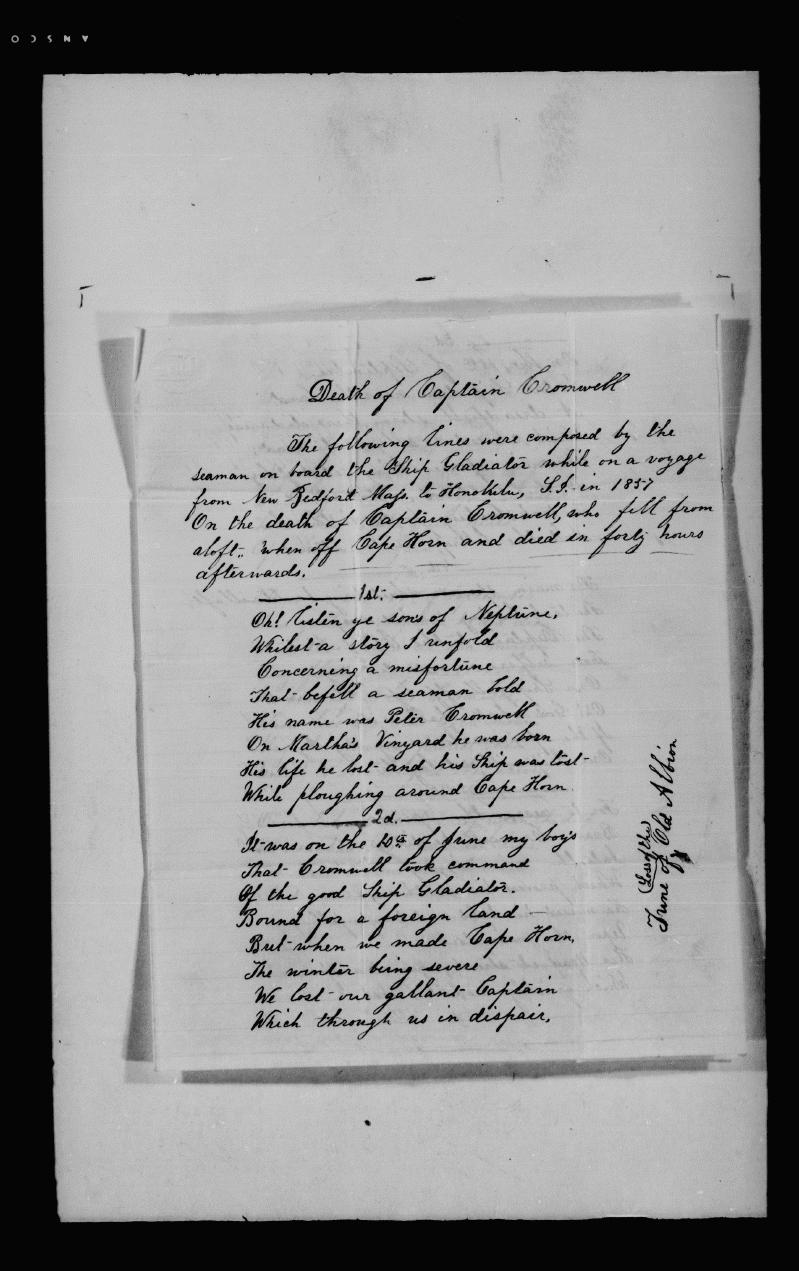 ANSCO
Death of Captain Cromwell
The following lines were composed by the
seaman on board the Ship Gladiator while on a voyage
from New Bedford Mass. to Honolulu, S.I. in 1857
On the death of Captain Cromwell, who fell from
aloft, when off Cape Horn and died in forty hours
afterwards.
1st.
Oh! listen ye sons of Neptune,
Whilest a story I unfold
Concerning a misfortune
That befell a seaman bold
His name was Peter Cromwell
On Martha's Vinyard he was born
His life he lost and his Ship was lost
While ploughing around Cape Horn.
2d.
It was on the 10th of June my boy's
That Cromwell took command
Of the good Ship Gladiator.
Bound for a foreign land —
But when we made Cape Horn,
The winter being severe
We lost our gallant Captain
Which through us in dispair.
(Loss of the)
Tune of Old Albion